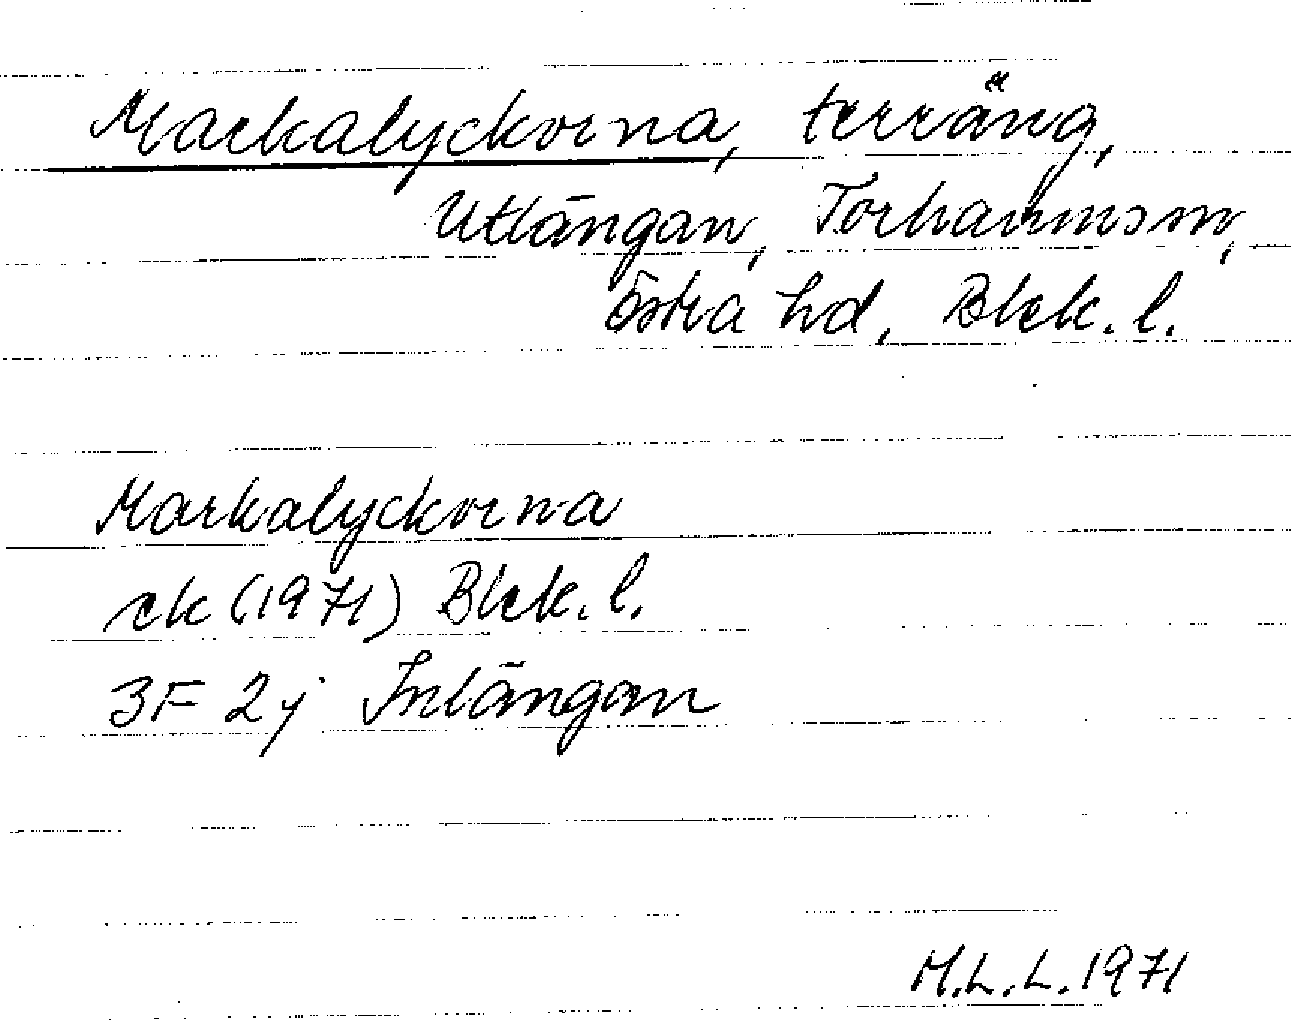 Markalyckorna, terräng,
Utlängan, Torhamns sn,
Östra hd, Blek. l.
Markalyckorna
ek (1971) Blek. l.
3F 2j Inlängan
M.L.L. 1971